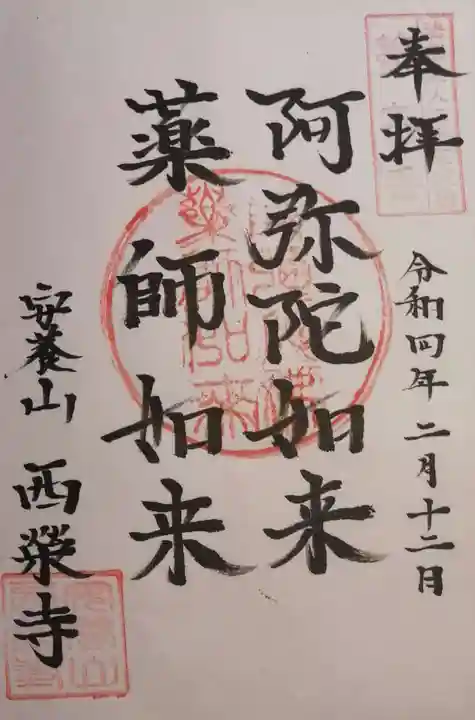 奉拝
令和四年二月十二日
阿弥陀如来
薬師如来
安養山 西栄寺